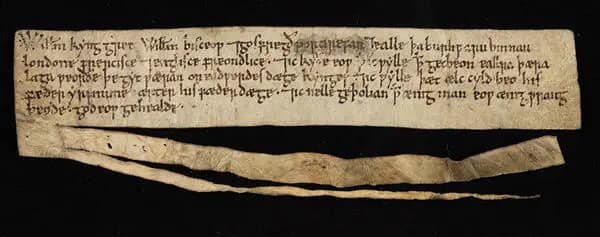 Ƿillm kyng gret Ƿillm bisceop ⁊ gosfregð portirefan ⁊ ealle þa burhƿaru binnan
londone frencisce ⁊ englisce freondlice · ⁊ ic kyðe eoƿ ꝥ ic ƿylle ꝥ get beon eallra þæra
laga ƿeorðe þe gyt ƿæran on eadƿerdes dæge kynges · ⁊ ic ƿylle þæt ælc cyld beo his
fæder yrfnume æfter his fæder dæge · ⁊ ic nelle geþolian ꝥ ænig man eoƿ ænig ƿrang
beode · god eoƿ gehealde ·